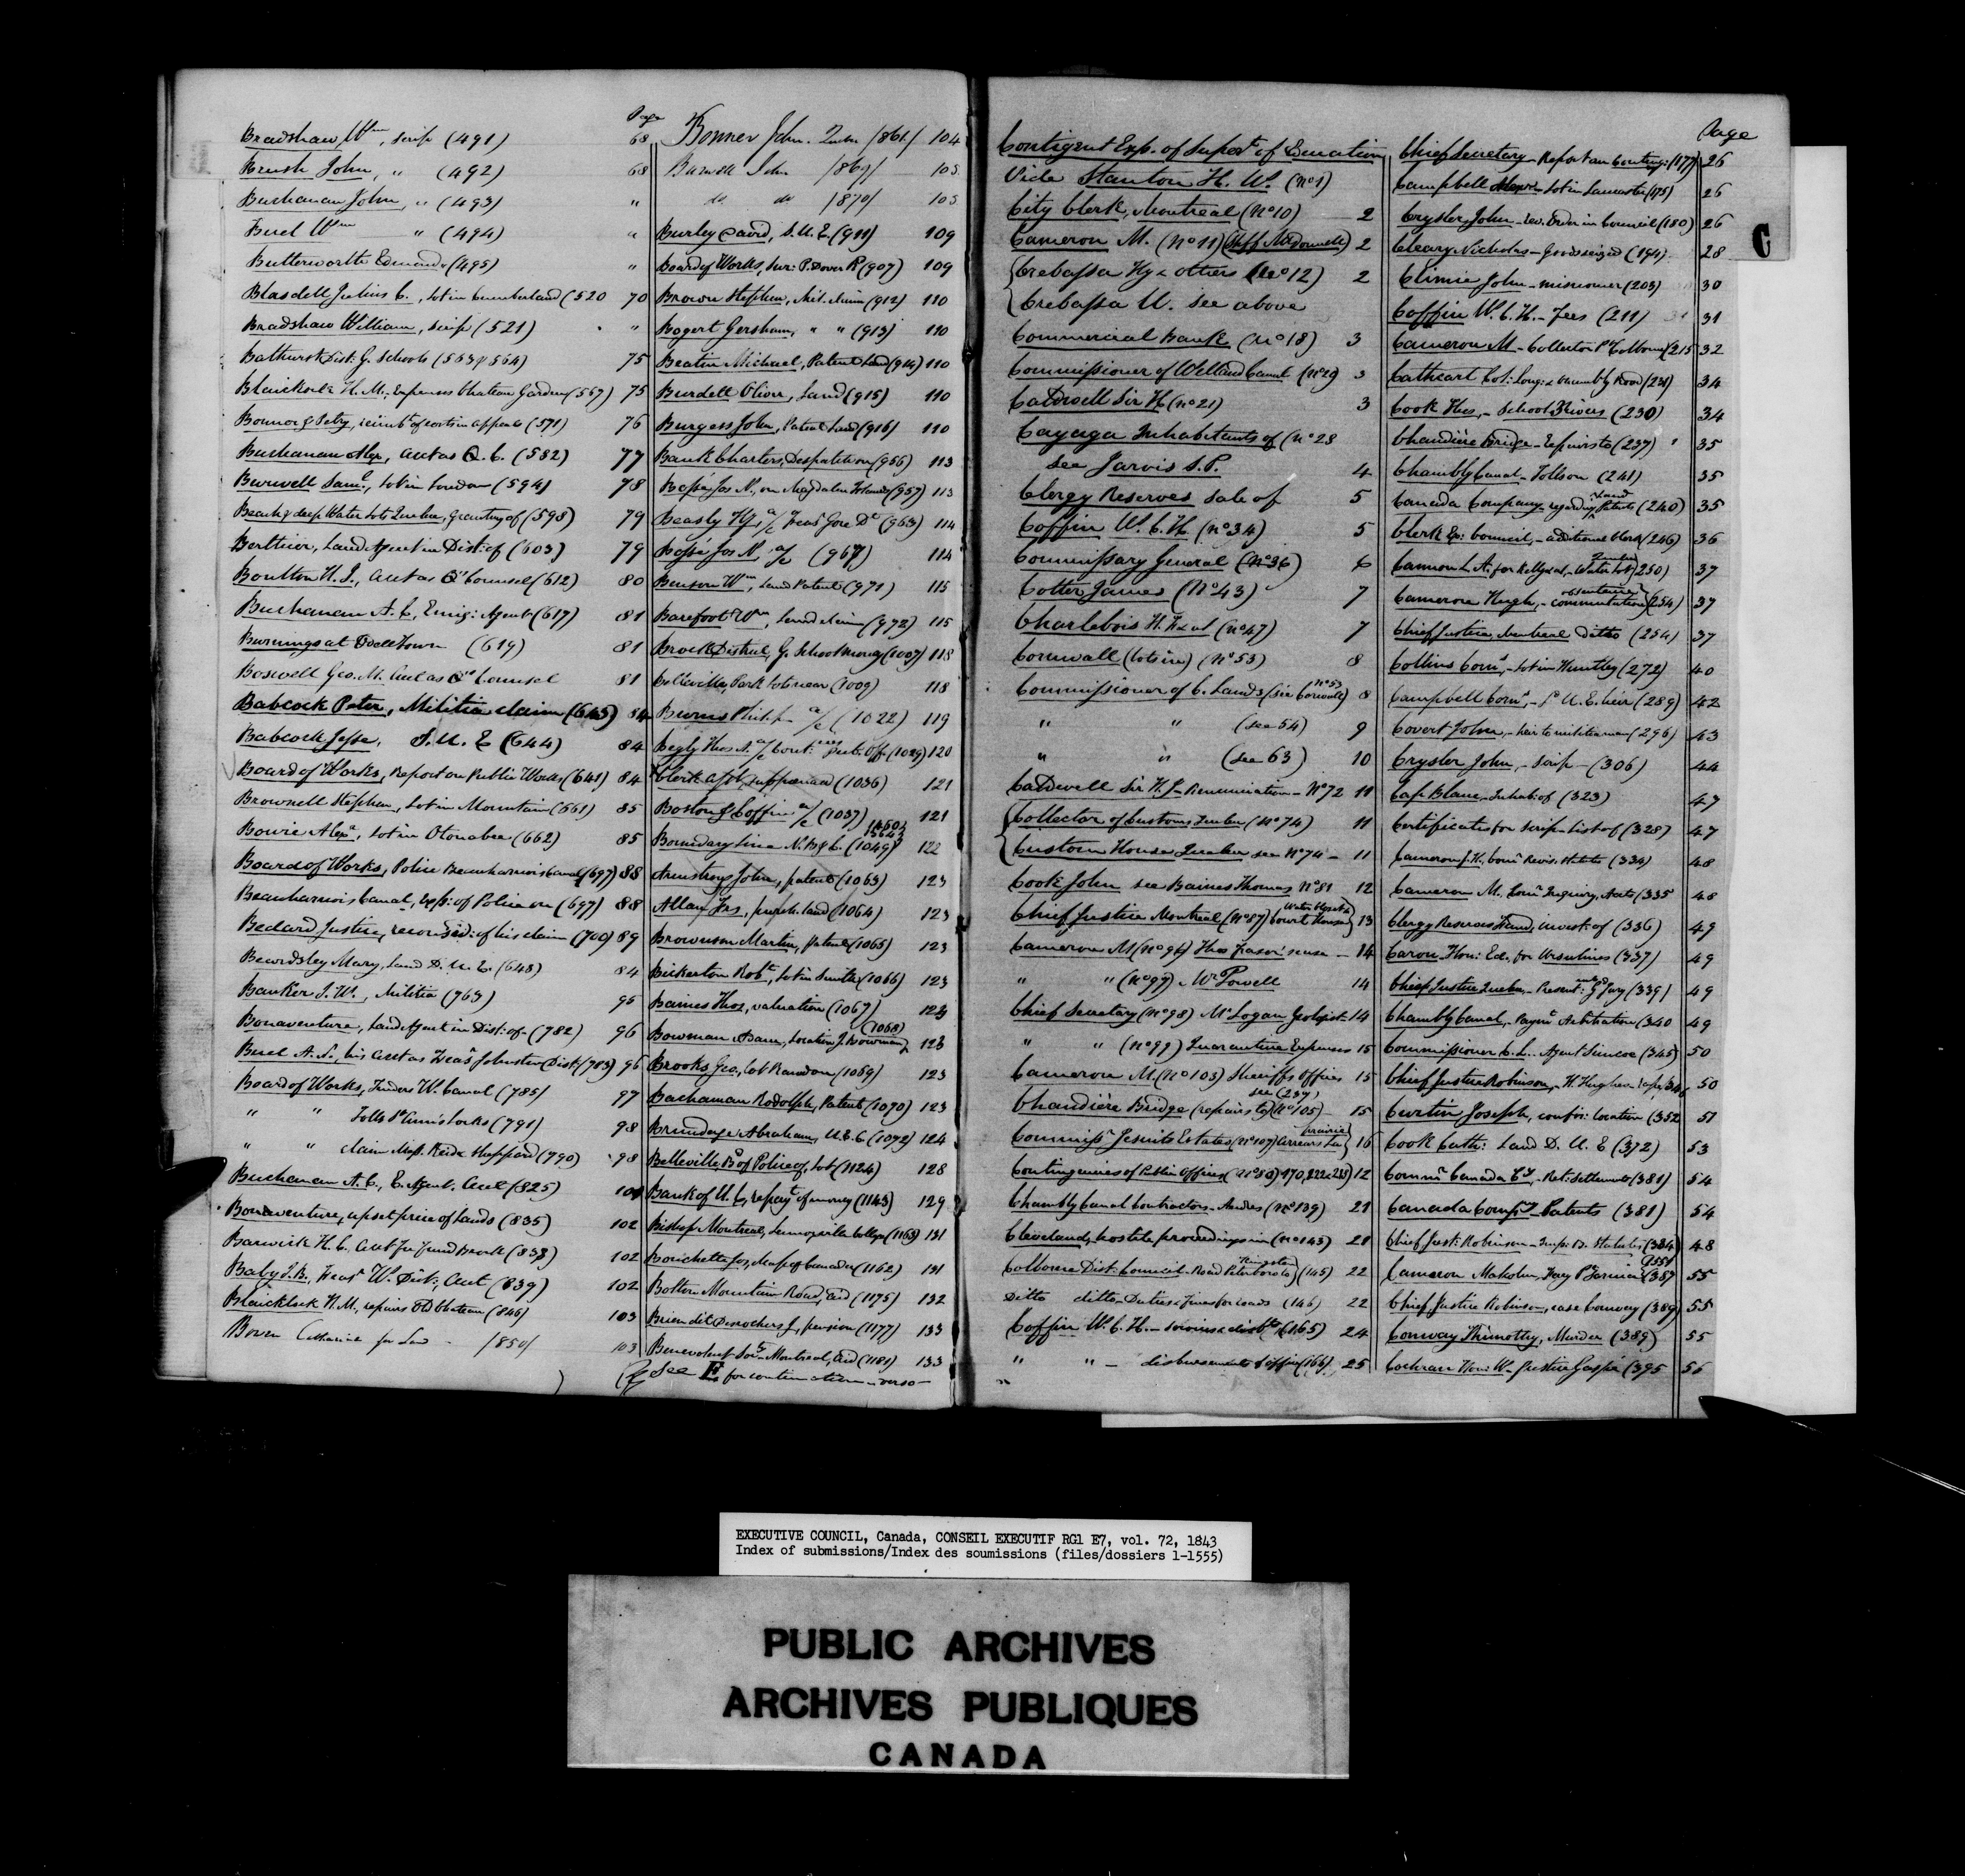 Page
Bradshaw Wm, scrip (491) 68
Brush John, " (492) 68
Buchanan John, " (493) "
Buel Wm " (494) "
Butterworth Edmund " (495) "
Blasdell Julius C., lot in Cumberland (520 70
Bradshaw William, scrip (521) "
Bathurst Dist: G. Schools (563 & 564) 75
Blaicklock H. M., Expenses Chateau Garden (567) 75
Bonner & Petry, reimbt of certain appeals (571) 76
Buchanan Alex, acct as Q. C. (582) 77
Burwell Saml, lot in London (594) 78
Beach & deep Water lots Quebec, Granting of (598) 79
Berthier, Land Agent in Dist: of (603) 79
Boulton H. J., acct as Qs Counsel (612) 80
Buchanan A. C., Emig: Agent (617) 81
Burnings at Odelltown (619) 81
Boswell Geo. M. acct as Qs Counsel 81
Babcock Peter, Militia claim (645) 84
Babcock Jesse, S. U. E (644) 84
Board of Works, Report on Public Works (641) 84
Brownell Stephen, lot in Mountain (661) 85
Bowie Alexr, lot in Otonabee (662) 85
Board of Works, Police Beauharnois Canal (697) 88
Beauharnois Canal, exp: of Police on (697) 88
Bedard Justice, reconsid: of his claim (700) 89
Beardsley Mary, land D. U. E. (648) 84
Banker J. W., Militia (763) 95
Bonaventure, Land Agent in Dist: of (782) 96
Buel A. N., his acct as Treasr Johnston Dist: (783) 96
Board of Works, Tenders W. Canal (785) 97
" " Tolls St Anns Locks (791) 98
" " claim Messrs Reid & Sheppard (790) 98
Buchanan A. C., E. Agent. Acct (825) 101
Bonaventure, upset price of lands (835) 102
Barwick H. C. acct 102
Baby J. B., Treasr W. Dist: Acct (839) 102
Blaicklock H. M., repairs Old Chateau (846) 103
Boven Catharine for Land /850/ 103
Bonner John. Quebec /861/ 104
Barwell John /869/ 105
do do /870/ 105
Burley David, S. U. E (911) 109
Board of Works, Sur: P. Dover R (907) 109
Brown Stephen, Mil. claim (912) 110
Bogert Gersham, " " (913) 110
Beatin Michael, Patent Land (914) 110
Burdell Oliver, Land (915) 110
Burgess John, Patent Land (916) 110
Bank Charters, Despatch on (956) 113
Bossé Jos N., on Magdalen Islands (957) 113
Beasly Hy, a/c Treasr Gore Dt (963) 114
Bossé Jos N, a/c (967) 114
Benson Wm, Land Patent (971) 115
Barefoot Wm, Land claim (972) 115
Brock District, G. School money (1007) 118
Belleville, Park lots near (1009) 118
Burns Philip a/c (1022) 119
Begly Thos A. a/c Cont: Pub: Off: (1029) 120
(1036) 121
Boston & Coffin a/c (1037) 121
Boundary Line N. B & C. (1049) 122
Armstrong John, patent (1063) 123
Allan Jas, purch. land (1064) 123
Brownson Martin, Patent (1065) 123
Bickerton Robt, lot in Smith (1066) 123
Baines Thos, valuation (1067) 123
Bowman Adam, Location J. Bowman (1068) 123
Brooks Geo, lot Rawdon (1069) 123
Bachaman Rodolph, Patent (1070) 123
Brundage Abraham, U. E. C (1072) 124
Belleville, Bd of Police of, lot (1124) 128
Bank of U. C, repayt of money (1143) 129
Bishop Montreal, Lennoxville College (1163) 131
Bouchette Jos, Map of Canada (1162) 131
Bolton Mountain Road, aid (1175) 132
Brien dit Desrochers J, pension (1177) 133
Benevolent Socy Montreal, aid (1181) 133
See E for continuation - verso -
Contigent Exp. of Supert of Education
Vide Stanton H. W. (No 1)
City Clerk, Montreal (No 10) 2
Cameron M. (No 11) (Aff McDonnell) 2
Crebassa Hy & others (No 12) 2
Crebassa U. see above
Commercial Bank (No 18) 3
Commissioner of Welland Canal (No 29) 3
Caldwell Sir H (No 21) 3
Cayaga Inhabitants of (No 28
see Jarvis S. P. 4
Clergy Reserves sale of 5
Coffin W. C. H (No 34) 5
Commissary General (No 36) 6
Cotter James (No 43) 7
Charlebois H. & al (No 47) 7
Cornwall (lots in) (No 53) 8
Commissioner of C. Lands (see Cornwall No 53) 8
" " (see 54) 9
" " (see 63) 10
Caldwell Sir H. J - Renumeration - No 72 11
Collector of Customs, Quebec (No 74) 11
Custom House Quebec see No 74 - 11
Cook John see Baines Thomas No 81 12
Chief Justice Montreal (No 87) Court House 13
Cameron M (No 96) 14
" " (No 97) Wm Powell 14
Chief Secretary (No 98) Mr Logan Geologist 14
" " (No 99) Quarantine Expenses 15
Cameron M (No 103) Sheriffs Offices 15
see (237)
Chaudière Bridge (repairs to) (No 105) - 15
Commissr Jesuits Estates (No 107) arrears La prairie 16
Contingencies of Public Offices (No 80) 170, 222 & 223) 12
Chambly Canal Contractors - Andres (No 139) 21
Cleveland, hostile proceedings in (No 143) 21
Colborne Dist: Council - Road Peterboro to Kingston (145) 22
Ditto ditto - Duties & Fines for roads (146) 22
Coffin W. C. H. - services & disbts (165) 24
" " - disbursements & office (166) 25
Page
Chief Secretary - Report on Conting: (177) 26
Campbell - lot in Lancaster (175) 26
Crysler John - Order in Council (180) 26
Cleary Nicholas - Goods seized (194) 28
Climie John - missioner (203) 30
Coffin W. C. H. - Fees (211) 31
Cameron M - Collector P. Colborne (215 32
Cathcart Col: Long: & Chambly Road (231) 34
Cook Thos, - School 3 Rivers (230) 34
Chaudière Bridge - Repairs to (237) 35
Chambly Canal - Tolls on (241) 35
Canada Company - regarding Land Patents (240) 35
Clerk Ex: Council, - additional Clerk (246) 36
Cannon L. A. for Kelly & al, - Water lot Quebec (250) 37
Cameron Hugh, - commutation (254) 37
Chief Justice, Montreal ditto (254) 37
Collins Corns, - lot in Huntley (272) 40
Campbell Corns, - U. E. heir (289) 42
Covert John, - heir to militia man (296) 43
Crysler John, - scrip - (306) 44
Cap Blanc, - Inhab: of (323) 47
Certificates for scrip - list of (328) 47
Cameron J. H., Comr Revis: Statutes (334) 48
Cameron M. Comr Inquiry, Acct (335 48
Clergy Reserves Fund, invest: of (336) 49
Caron Hon: Ed. for Ursulines (337) 49
Chief Justice Quebec, - Present: Gd Jury (339) 49
Chambly Canal, Paymt Arbitration (340 49
Commissioner C. L. - Agent Simcoe (345) 50
Chief Justice Robinson, - H. Hughes 50
Curtin Joseph, confir: location (352 51
Cook Cath: Land D. U. E (372) 53
Commr Canada Cy, - Ret: Settlement (381) 54
Canada Company Patents (381) 54
Chief Just: Robinson - Imp: B. Statutes (334) 48
Cameron Malcolm, (387 55
Chief Justice Robinson, case Conway (389) 55
Conway Thimothy, Murder (389) 55
Cochran Hon: W. Justice Gaspé (395 56
C
EXECUTIVE COUNCIL, Canada, CONSEIL EXECUTIF RG1 E7, vol. 72, 1843
Index of submissions/Index des soumissions (files/dossiers 1-1555)
PUBLIC ARCHIVES
ARCHIVES PUBLIQUES
CANADA